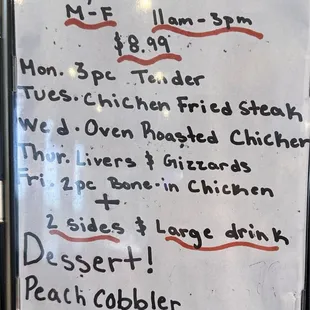 M-F 11am-3pm
$8.99
Mon. 3pc Tender
Tues. Chicken Fried Steak
Wed. Oven Roasted Chicken
Thur. Livers & Gizzards
Fri. 2pc Bone-in Chicken
+
2 sides & Large drink
Dessert!
Peach Cobbler